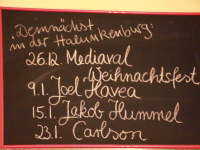 Demnächst
in der Halunkenburg:
26.12. Mediaval
Weihnachtsfest
9.1. Joel Havea
15.1. Jakob Hummel
23.1. Carlson